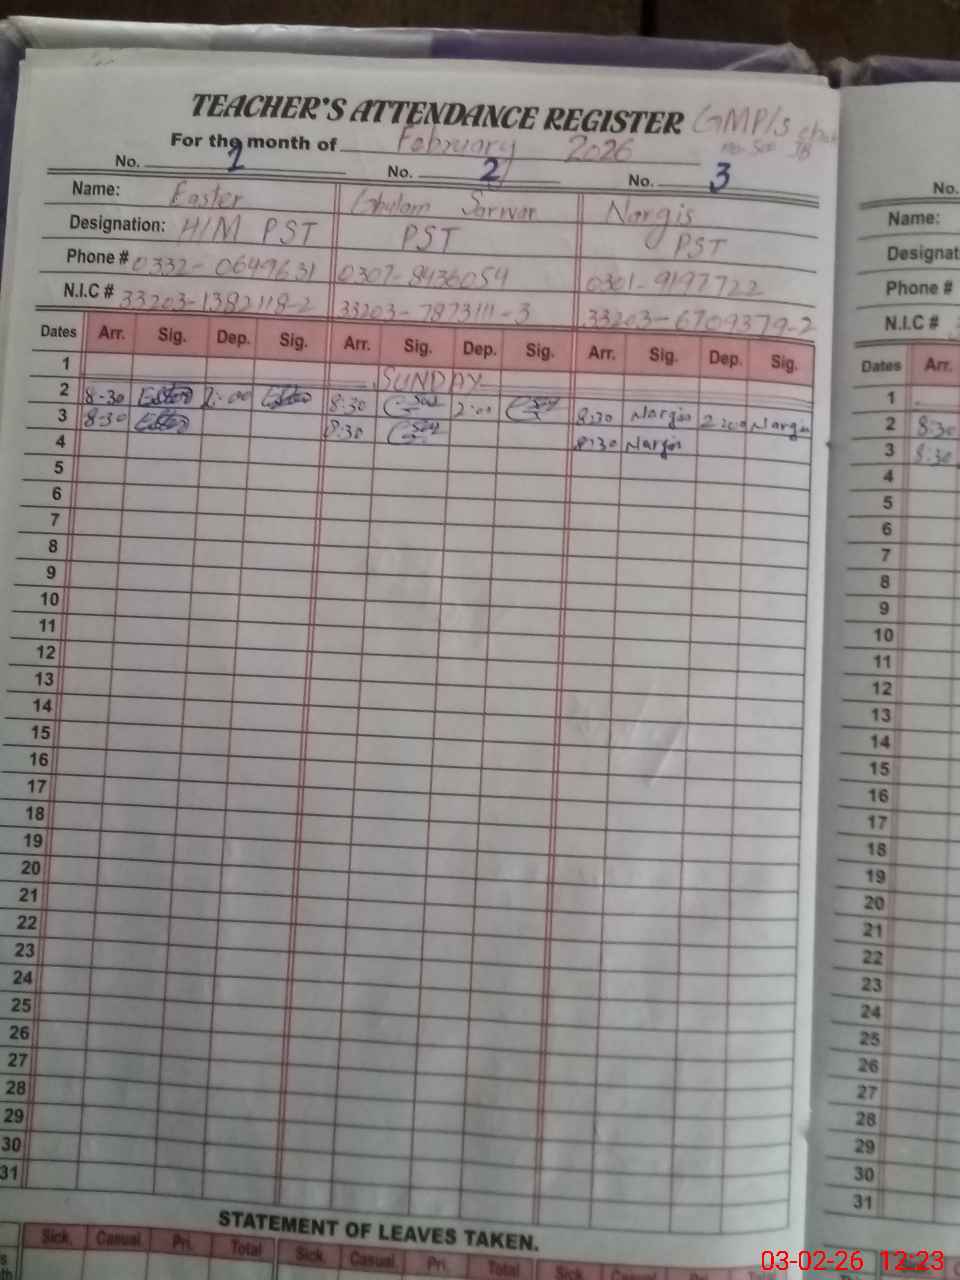 TEACHER'S ATTENDANCE REGISTER GMP/s
For the month of February 2026
No. 1 No. 2 No. 3
Name: Easter Ghulam Sarwar Nargis
Designation: H/M PST PST PST
Phone # 0332-0649631 0307-8436054 0301-9197722
N.I.C # 33203-1382118-2 33203-7873111-3 33203-6709379-2
Dates Arr. Sig. Dep. Sig. Arr. Sig. Dep. Sig. Arr. Sig. Dep. Sig.
1 SUNDAY
2 8-30 2-00 8:30 2:00 8:30 Nargis 2:00 Nargis
3 8:30 8:30 8:30 Nargis
4
5
6
7
8
9
10
11
12
13
14
15
16
17
18
19
20
21
22
23
24
25
26
27
28
29
30
31
STATEMENT OF LEAVES TAKEN.
Sick. Casual. Pri. Total Sick. Casual. Pri. Total Sick.
No.
Name:
Designat
Phone #
N.I.C #
Dates Arr.
1
2 8:30
3 8:30
4
5
6
7
8
9
10
11
12
13
14
15
16
17
18
19
20
21
22
23
24
25
26
27
28
29
30
31
03-02-26 12:23